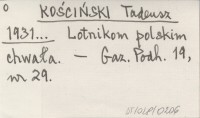 0
KOŚCIŃSKI Tadeusz
1931... Lotnikom polskim
chwała. — Gaz. Podh. 19,
nr 29.